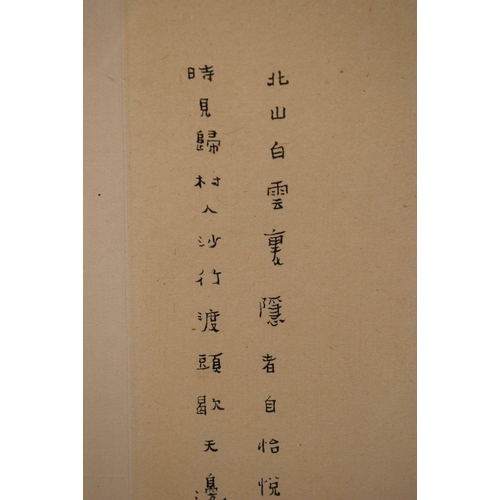 北山白雲裏隱者自怡悅
時見歸村人沙行渡頭歇天邊